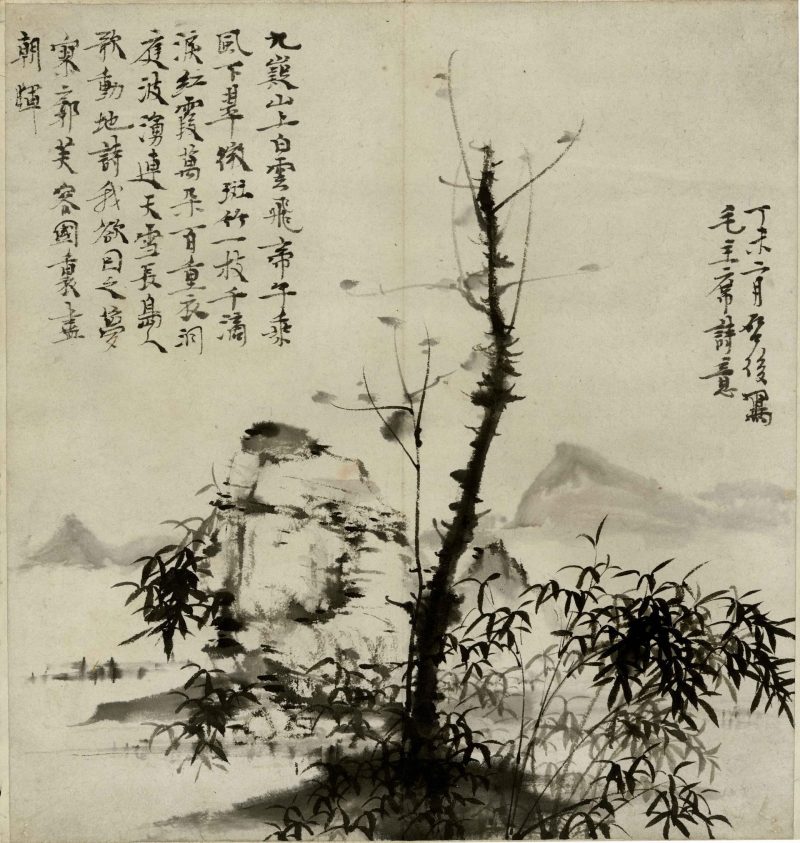 丁未二月後寫
毛主席詩意
九嶷山上白雲飛帝子乘
風下翠微斑竹一枝千滴
淚紅霞萬朵百重衣洞
庭波湧連天雪長島人
歌動地詩我欲因之夢
寥郭芙蓉國裏盡
朝暉